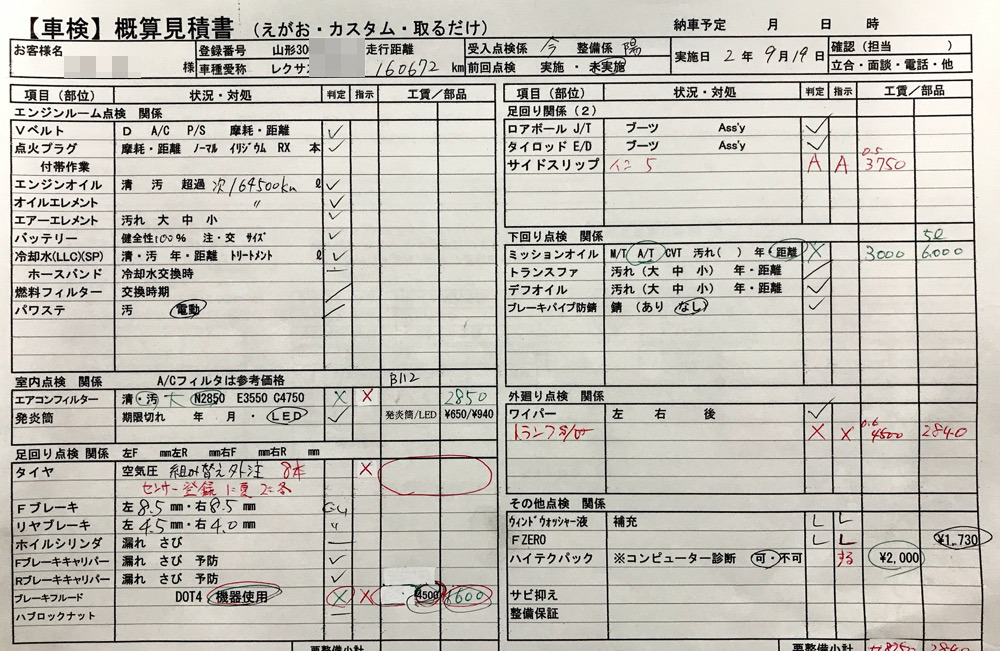 【車検】概算見積書 (えがお・カスタム・取るだけ) 納車予定 月 日 時
お客様名 様
登録番号 山形300 走行距離
車種愛称 レクサ 160672 km
受入点検係 今 整備係 陽
前回点検 実施・未実施
実施日 2 年 9月19日
確認(担当 )
立合・面談・電話・他
項目(部位) 状況・対処 判定 指示 工賃/部品
エンジンルーム点検 関係
Vベルト D A/C P/S 摩耗・距離 ✓
点火プラグ 摩耗・距離 ノーマル イリジウム RX 本 ✓
付帯作業
エンジンオイル 清 汚 超過 次164500km ℓ ✓
オイルエレメント 〃 ✓
エアーエレメント 汚れ 大 中 小 ✓
バッテリー 健全性100% 注・交 サイズ ✓
冷却水(LLC)(SP) 清・汚 年・距離 トリートメント ℓ ✓
ホースバンド 冷却水交換時
燃料フィルター 交換時期
パワステ 汚 電動
室内点検 関係 A/Cフィルタは参考価格 B112
エアコンフィルター 清・汚 大 N2850 E3550 C4750 X X 2850
発炎筒 期限切れ 年 月・LED ✓ 発炎筒/LED ¥650/¥940
足回り点検 関係 左F ㎜左R ㎜右F ㎜右R ㎜
タイヤ 空気圧 組み替え外注 8本 X
センサー登録 1に夏 2に冬
Fブレーキ 左8.5㎜・右8.5㎜
リヤブレーキ 左4.5㎜・右4.0㎜ 〃
ホイルシリンダ 漏れ さび
Fブレーキキャリパー 漏れ さび 予防 ✓
Rブレーキキャリパー 漏れ さび 予防 ✓
ブレーキフルード DOT4 機器使用 X X 4500 1600
ハブロックナット
要整備小計
項目(部位) 状況・対処 判定 指示 工賃/部品
足回り関係(2)
ロアボールJ/T ブーツ Ass'y ✓
タイロッドE/D ブーツ Ass'y ✓
サイドスリップ イン 5 A A 0.5 3750
下回り点検 関係 5ℓ
ミッションオイル M/T A/T CVT 汚れ( ) 年・距離 X 3000 6.000
トランスファ 汚れ(大 中 小) 年・距離
デフオイル 汚れ(大 中 小) 年・距離 ✓
ブレーキパイプ防錆 錆 (あり なし) ✓
外廻り点検 関係
ワイパー 左 右 後 ✓
トランク X X 0.6 4500 2840
その他点検 関係
ウィンドウォッシャー液 補充 L L
FZERO L L ¥1,730
ハイテクパック ※コンピューター診断 可・不可 する ¥2,000
サビ抑え
整備保証
要整備小計